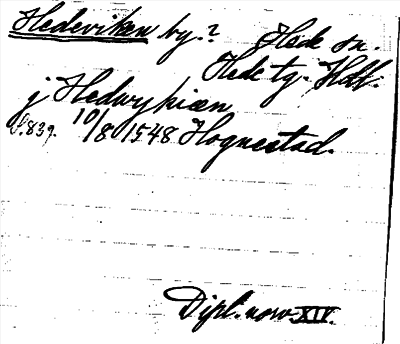 Hedeviken by? Hede sn.
Hede tg. Hdl.
j Hedwykæn
S. 839. 10/8 1548 Hognestad.
Dipl. norv. XIV.